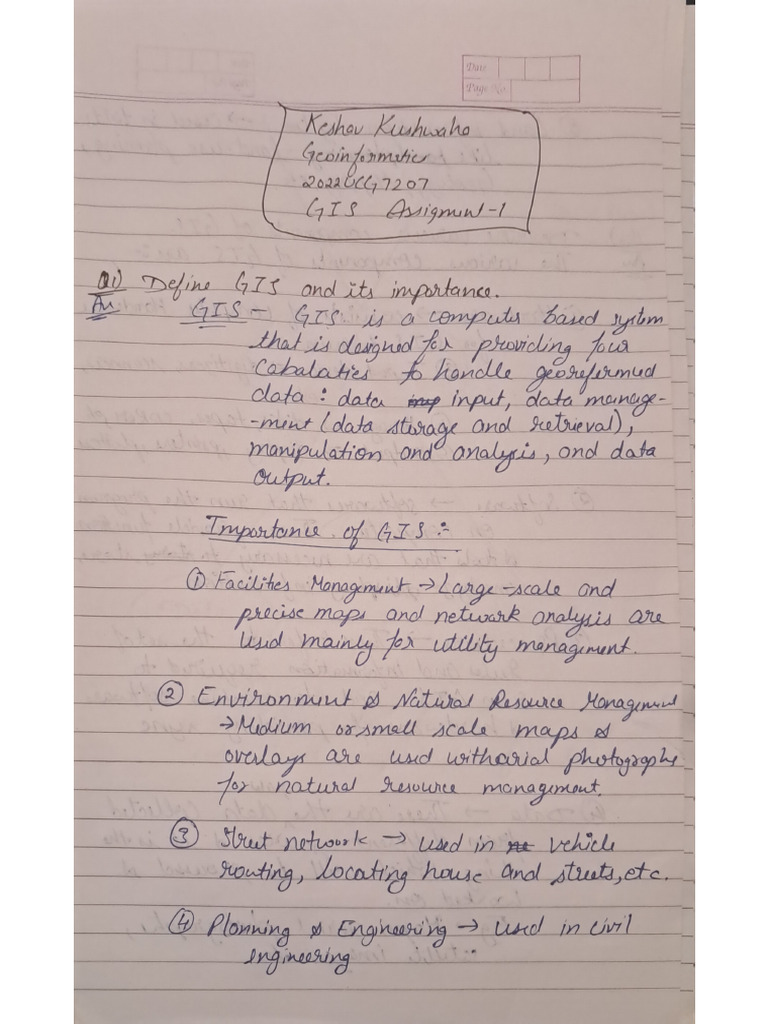 Date
Page No.
Keshav Kushwaha
Geoinformatics
2022UCG7207
GIS Assigment-1
Q1) Define GIS and its importance.
An GIS - GIS is a computer based system
that is designed for providing four
cabalaties to handle georeferrned
data : data input, data manage-
-ment (data storage and retrieval),
manipulation and analysis, and data
output.
Importance of GIS :-
① Facilities Management → Large-scale and
precise maps and network analysis are
used mainly for utility management.
② Environment & Natural Resource Management
→ Medium or small scale maps &
overlays are used with arial photographs
for natural resource management.
③ Street network → used in vehicle
routing, locating house and streets, etc.
④ Planning & Engineering → used in civil
engineering